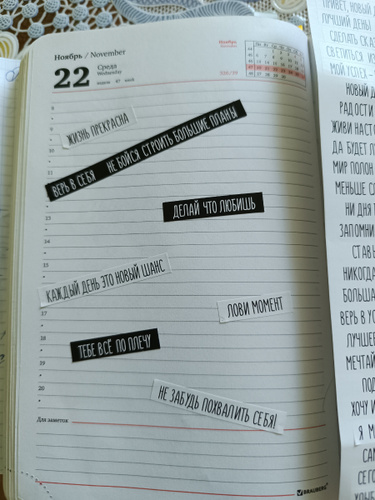 Ноябрь / November
22
Среда
Wednesday
Ноябрь
326/39
8
9
ЖИЗНЬ ПРЕКРАСНА
ВЕРЬ В СЕБЯ НЕ БОЙСЯ СТРОИТЬ БОЛЬШИЕ ПЛАНЫ
11
12
ДЕЛАЙ ЧТО ЛЮБИШЬ
13
14
15
КАЖДЫЙ ДЕНЬ ЭТО НОВЫЙ ШАНС
ЛОВИ МОМЕНТ
17
18
ТЕБЕ ВСЁ ПО ПЛЕЧУ
19
20
НЕ ЗАБУДЬ ПОХВАЛИТЬ СЕБЯ!
Для заметок
BRAUBERG
ПРИВЕТ, НОВЫЙ
ЛУЧШИЙ ДЕНЬ
СДЕЛАТЬ
СВЕТИТЬСЯ
МОЙ
НОВЫЙ
РАДОСТИ
ЖИВИ
ДА БУДЕТ
МИР ПОЛОН
МЕНЬШЕ
НИ ДНЯ
НИКОГДА
ВЕРЬ В
ХОЧУ И
Я